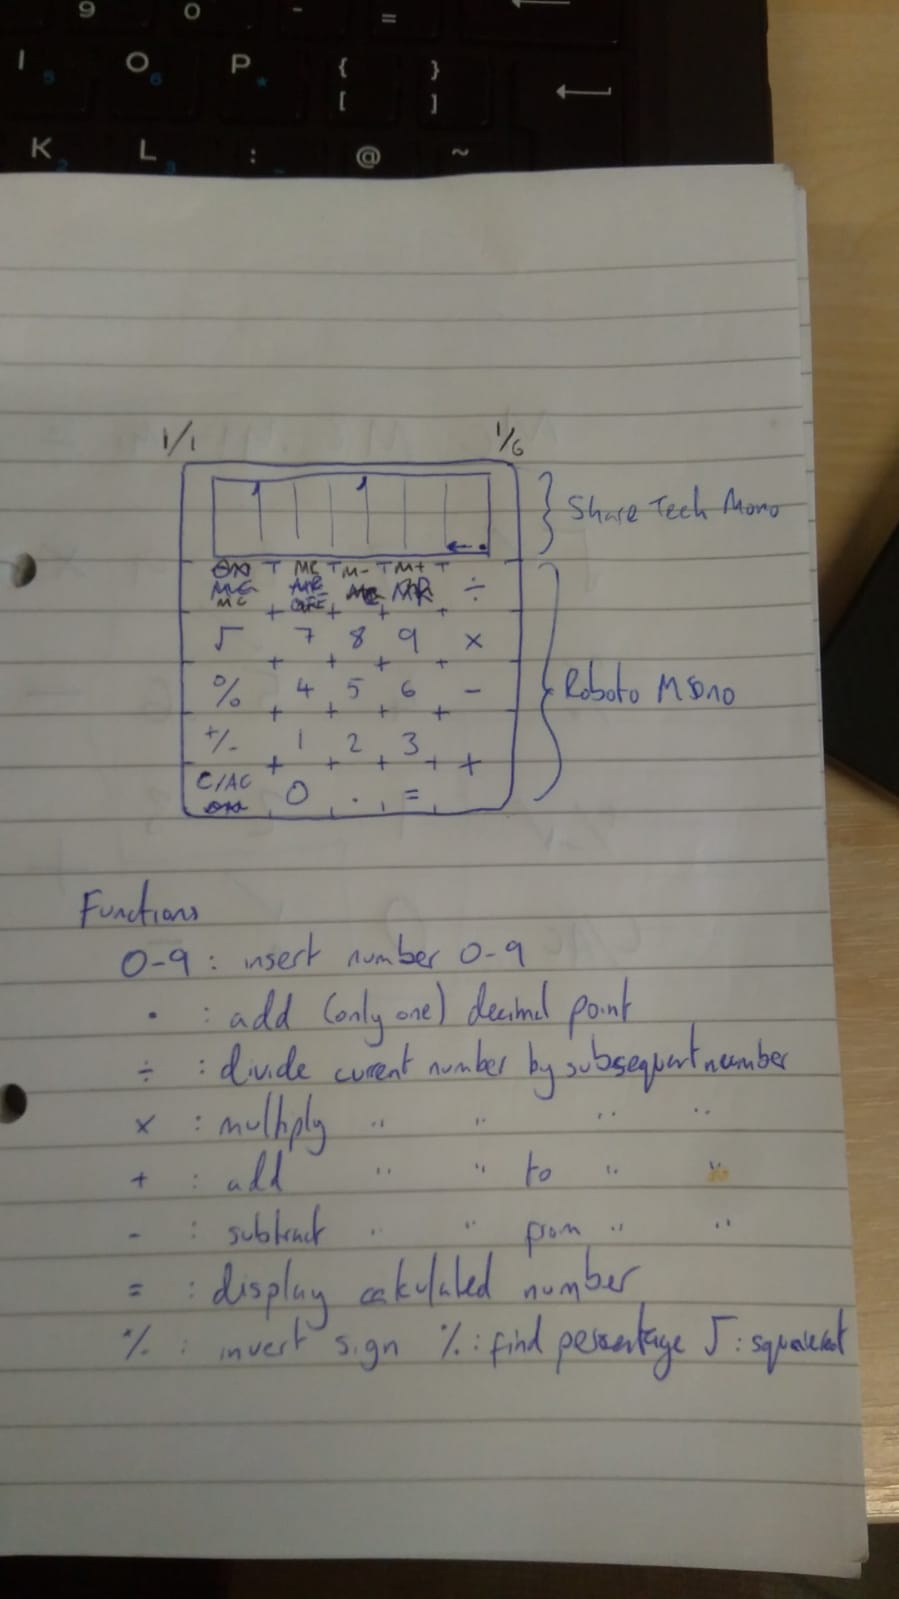 9 0 - =
I 5 O 6 P * { [ } ]
K 2 L 3 : @ ~
1/1 1/6
Share Tech Mono
MR M- M+
MC ÷
√ 7 8 9 ×
% 4 5 6 -
Roboto Mono
+/- 1 2 3 +
C/AC 0 . =
Functions
0-9 : insert number 0-9
. : add (only one) decimal point
÷ : divide current number by subsequent number
× : multiply " " " "
+ : add " " to " "
- : subtract " " from " "
= : display calculated number
+/- : invert sign % : find percentage √ : squareroot